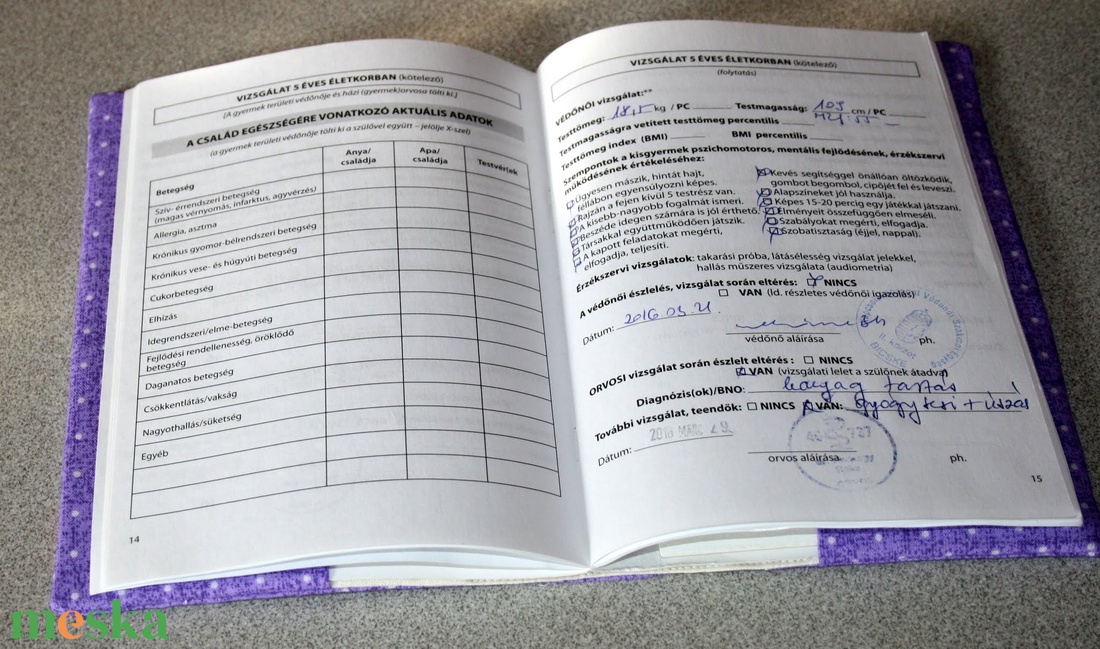 VIZSGÁLAT 5 ÉVES ÉLETKORBAN (kötelező)
(A gyermek területi védőnője és házi (gyermek)orvosa tölti ki.)
A CSALÁD EGÉSZSÉGÉRE VONATKOZÓ AKTUÁLIS ADATOK
(a gyermek területi védőnője tölti ki a szülővel együtt – jelölje X-szel)
Betegség
Anya/
családja
Apa/
családja
Testvér/ek
Szív- érrendszeri betegség
(magas vérnyomás, infarktus, agyvérzés)
Allergia, asztma
Krónikus gyomor-bélrendszeri betegség
Krónikus vese- és húgyúti betegség
Cukorbetegség
Elhízás
Idegrendszeri/elme-betegség
Fejlődési rendellenesség, öröklődő
betegség
Daganatos betegség
Csökkentlátás/vakság
Nagyothallás/süketség
Egyéb
14
VIZSGÁLAT 5 ÉVES ÉLETKORBAN (kötelező)
(folytatás)
VÉDŐNŐI vizsgálat:**
Testtömeg: 18,5 kg / PC Testmagasság: 109 cm / PC
Testmagasságra vetített testtömeg percentilis
Testtömeg index (BMI) BMI percentilis
Szempontok a kisgyermek pszichomotoros, mentális fejlődésének, érzékszervi
működésének értékeléséhez:
Ügyesen mászik, hintát hajt,
féllábon egyensúlyozni képes.
Rajzán a fejen kívül 5 testrész van.
A kisebb-nagyobb fogalmát ismeri.
Beszéde idegen számára is jól érthető.
Társakkal együttműködően játszik.
A kapott feladatokat megérti,
elfogadja, teljesíti.
Kevés segítséggel önállóan öltözködik,
gombot begombol, cipőjét fel és leveszi.
Alapszíneket jól használja.
Képes 15-20 percig egy játékkal játszani.
Élményeit összefüggően elmeséli.
Szabályokat megérti, elfogadja.
Szobatisztaság (éjjel, nappal).
Érzékszervi vizsgálatok: takarási próba, látásélesség vizsgálat jelekkel,
hallás műszeres vizsgálata (audiometria)
A védőnői észlelés, vizsgálat során eltérés: NINCS
VAN (ld. részletes védőnői igazolás)
Dátum: 2016 03. 21.
védőnő aláírása ph.
ORVOSI vizsgálat során észlelt eltérés : NINCS
VAN (vizsgálati lelet a szülőnek átadva)
Diagnózis(ok)/BNO: hanyag tartás
További vizsgálat, teendők: NINCS VAN: gyógytesi + úszás
Dátum:
orvos aláírása ph.
15
meska